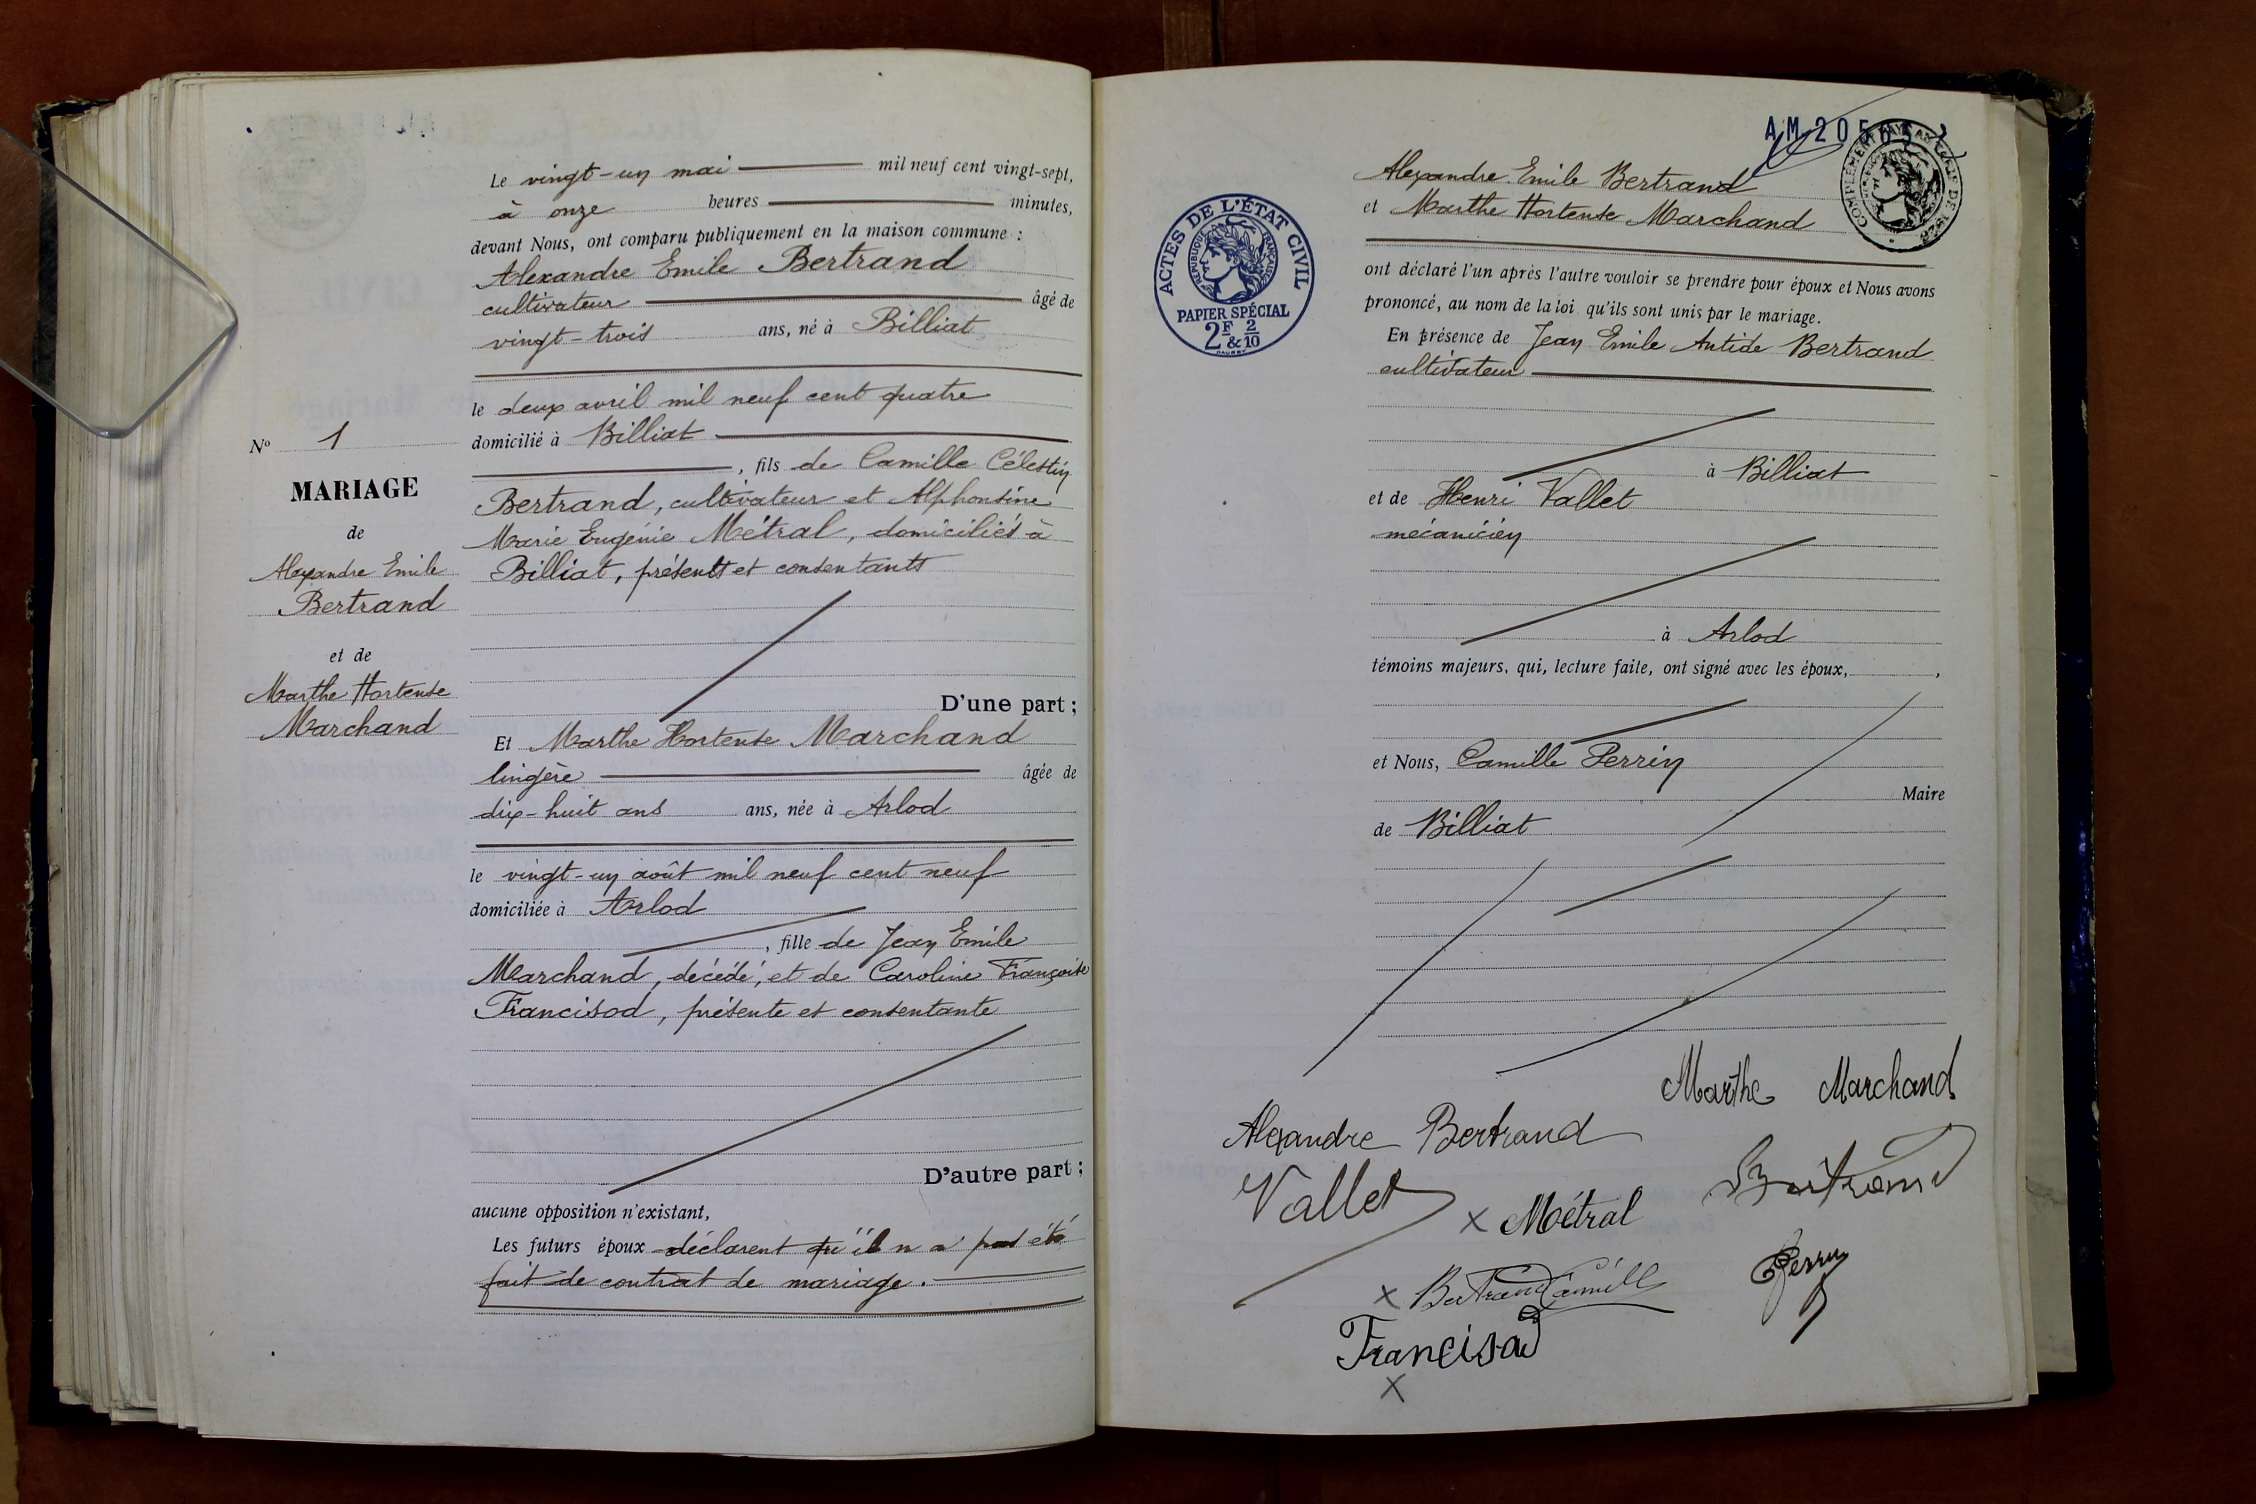 N° 1
MARIAGE
de
Alexandre Emile
Bertrand
et de
Marthe Hortense
Marchand
Le vingt-un mai mil neuf cent vingt-sept,
à onze heures minutes,
devant Nous, ont comparu publiquement en la maison commune :
Alexandre Emile Bertrand
cultivateur âgé de
vingt-trois ans, né à Billiat
le deux avril mil neuf cent quatre
domicilié à Billiat
, fils de Camille Célestin
Bertrand, cultivateur et Alphonsine
Marie Eugénie Métral, domiciliés à
Billiat, présents et consentants
D'une part ;
Et Marthe Hortense Marchand
lingère âgée de
dix-huit ans ans, née à Arlod
le vingt-un août mil neuf cent neuf
domiciliée à Arlod
, fille de Jean Emile
Marchand, décédé, et de Caroline Françoise
Francisod, présente et consentante
D'autre part ;
aucune opposition n'existant,
Les futurs époux déclarent qu'il n'a pas été
fait de contrat de mariage.
AM 205
COMPLÉMENT
ACTES DE L'ÉTAT CIVIL
RÉPUBLIQUE FRANÇAISE
PAPIER SPÉCIAL
2F & 2/10
Alexandre Emile Bertrand
et Marthe Hortense Marchand
ont déclaré l'un après l'autre vouloir se prendre pour époux et Nous avons
prononcé, au nom de la loi qu'ils sont unis par le mariage.
En présence de Jean Emile Antide Bertrand
cultivateur
à Billiat
et de Henri Vallet
mécanicien
à Arlod
témoins majeurs, qui, lecture faite, ont signé avec les époux, ,
et Nous, Camille Perrin
Maire
de Billiat
Marthe Marchand
Alexandre Bertrand
Vallet
x Métral
Bertrand
x Bertrand Camille
Perrin
Francisod
x